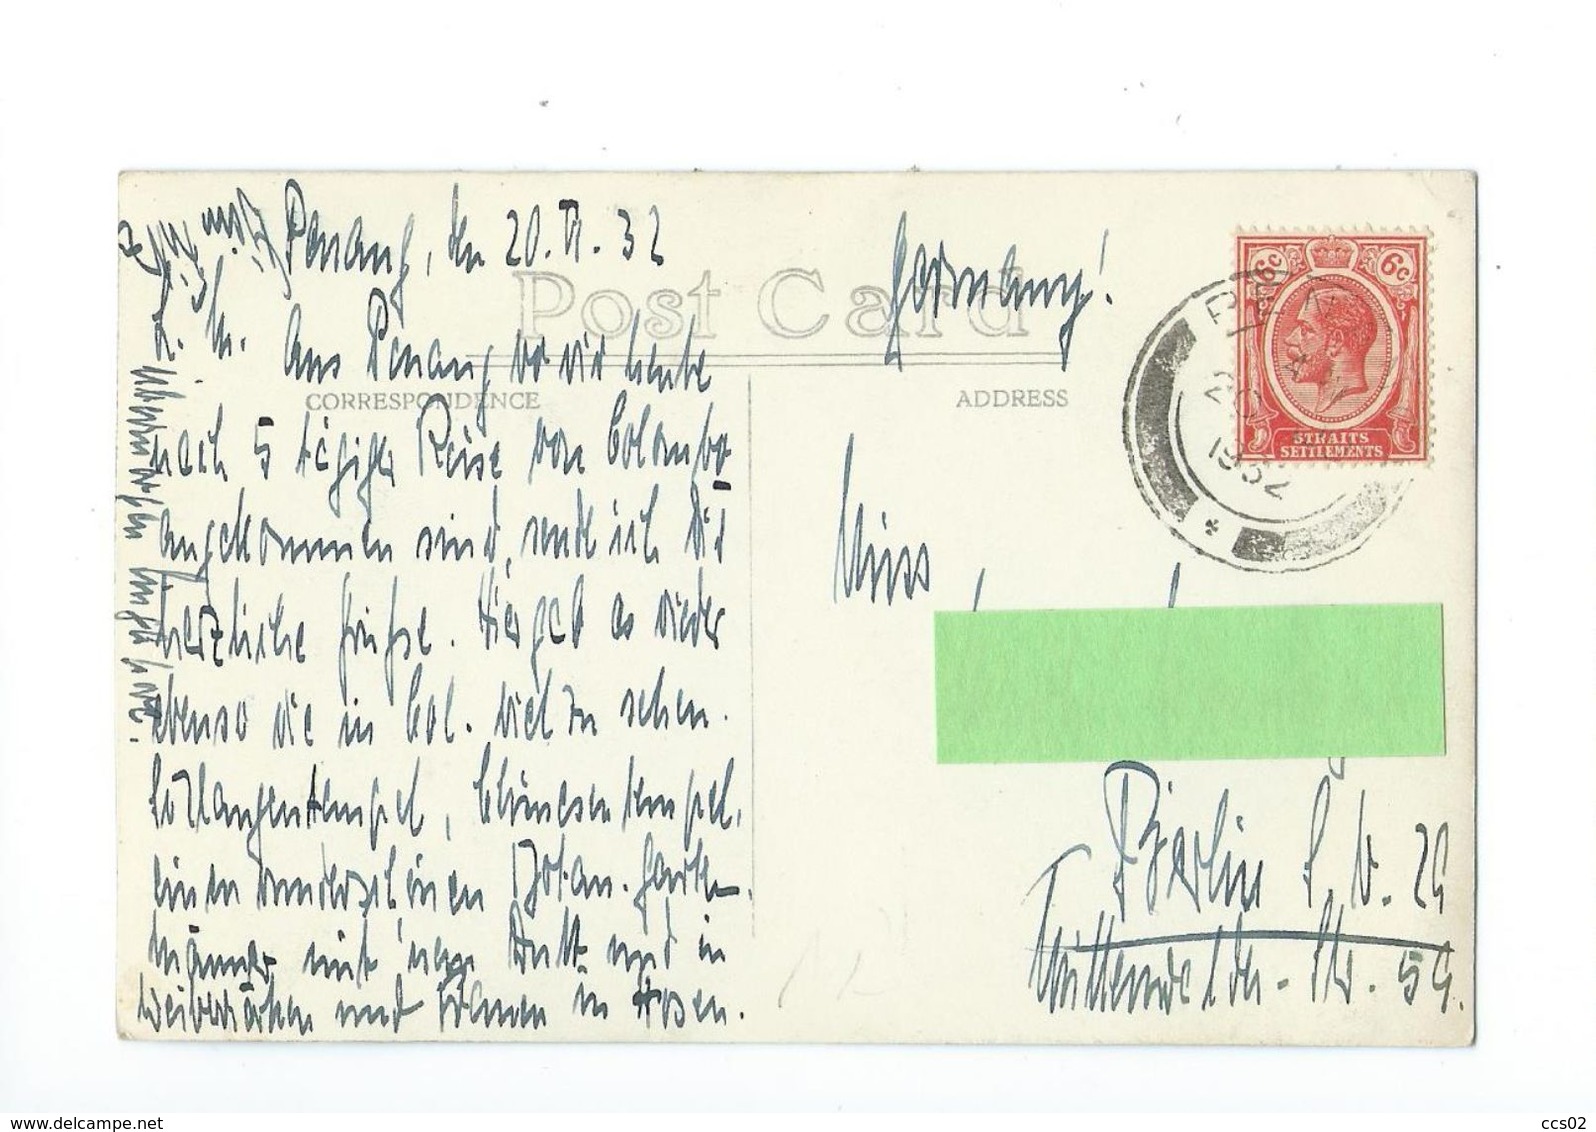 Penang, den 20. VI. 32
L. M. Aus Penang, wo wir heute
nach 5 tägiger Reise von Colombo
angekommen sind, sende ich Dir
herzliche Grüsse. Hier gab es wieder
ebenso wie in Col. viel zu sehen.
Schlangentempel, Chinesentempel,
einen wunderschönen Botan. Garten
Männer mit 'nem Dutt und in
Weiberröcken und Frauen in Hosen.
Post Card
CORRESPONDENCE
ADDRESS
Germany!
6c 6c
STRAITS
SETTLEMENTS
20
1932
Miss
Berlin S.W. 29
Mittenwalder-Str. 59.
www.delcampe.net
ccs02